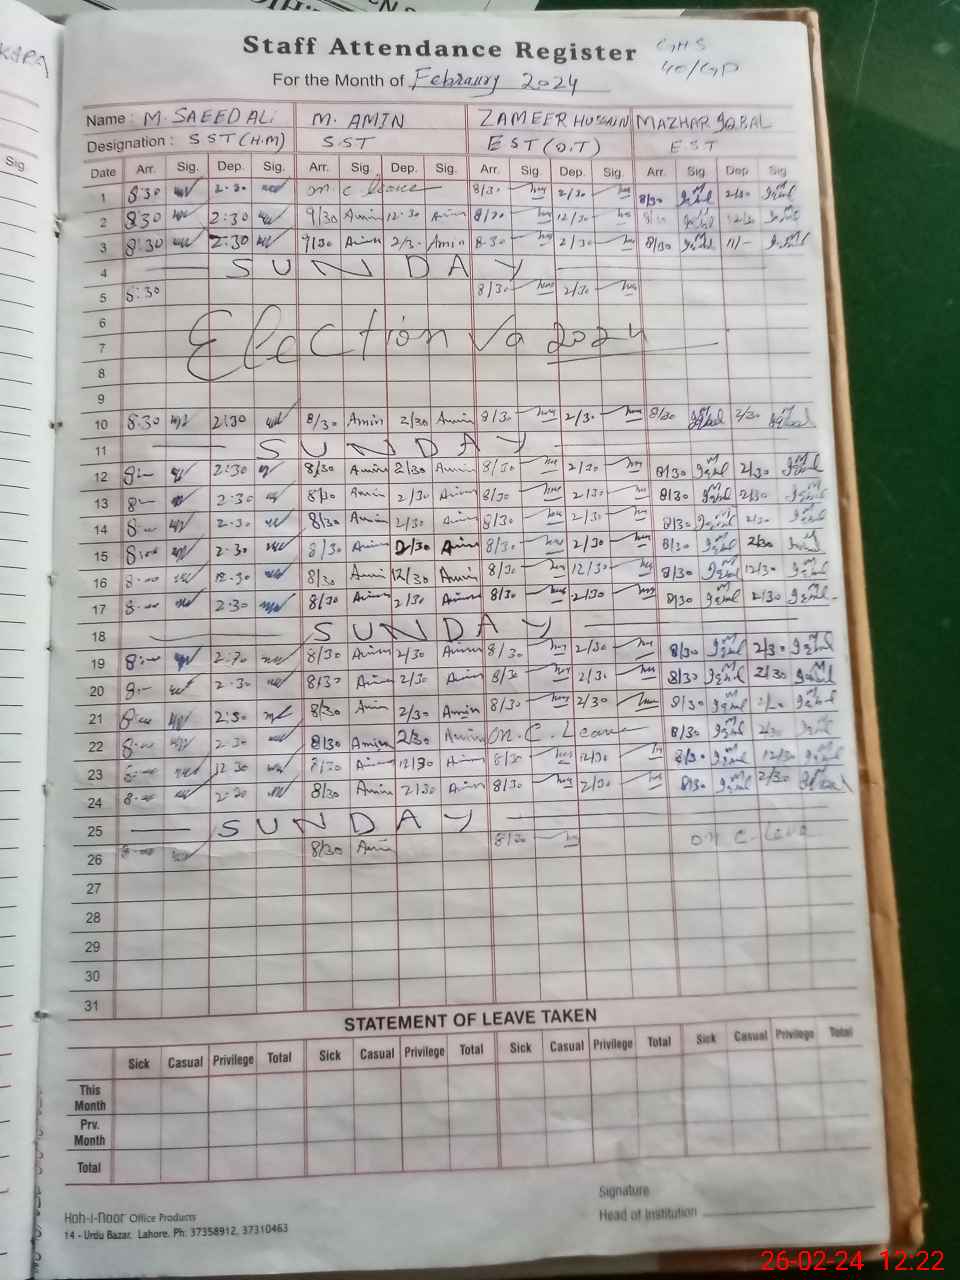 KARA
Sig.
Staff Attendance Register
GHS
40/GD
For the Month of February 2024
Name : M. SAEED ALI M. AMIN ZAMEER HUSSAIN MAZHAR IQBAL
Designation : SST (H.M) S.ST EST (O.T) EST
Date Arr. Sig. Dep. Sig. Arr. Sig. Dep. Sig. Arr. Sig. Dep. Sig. Arr. Sig. Dep Sig
1 8:30 2:30 on C leave 8/30 2/30 8/30 2/30
2 8:30 2:30 9/30 Amin 12:30 Amin 8/30 12/30 8/30 12/30
3 8:30 2:30 9/30 Amin 2/3. Amin 8:30 2/30 8/30 11/-
4 SUNDAY
5 8:30 8/30 2/30
6
7 Election 2024
8
9
10 8:30 2:30 8/30 Amin 2/30 Amin 8/30 2/30 8/30 2/30
11 SUNDAY
12 8:— 2:30 8/30 Amin 2/30 Amin 8/30 2/30 8/30 2/30
13 8:— 2:30 8/30 Amin 2/30 Amin 8/30 2/30 8/30 2/30
14 8:00 2:30 8/30 Amin 2/30 Amin 8/30 2/30 8/30 2/30
15 8:00 2:30 8/30 Amin 2/30 Amin 8/30 2/30 8/30 2/30
16 8:00 12:30 8/30 Amin 12/30 Amin 8/30 12/30 8/30 12/30
17 8:00 2:30 8/30 Amin 2/30 Amin 8/30 2/30 8/30 2/30
18 SUNDAY
19 8:— 2:30 8/30 Amin 2/30 Amin 8/30 2/30 8/30 2/30
20 8:— 2:30 8/30 Amin 2/30 Amin 8/30 2/30 8/30 2/30
21 8:00 2:30 8/30 Amin 2/30 Amin 8/30 2/30 8/30
22 8:00 2:30 8/30 Amin 2/30 Amin on C. Leave 8/30 2/30
23 8:00 12:30 8/30 Amin 12/30 Amin 8/30 12/30 8/30 12/30
24 8:00 2:30 8/30 Amin 2/30 Amin 8/30 2/30 8/30 2/30
25 SUNDAY
26 8:00 8/30 Amin 8/30 on C leave
27
28
29
30
31
STATEMENT OF LEAVE TAKEN
Sick Casual Privilege Total Sick Casual Privilege Total Sick Casual Privilege Total Sick Casual Privilege Total
This
Month
Prv.
Month
Total
Signature
Head of Institution
Koh-i-Noor Office Products
14 - Urdu Bazar, Lahore. Ph: 37358912, 37310463
26-02-24 12:22